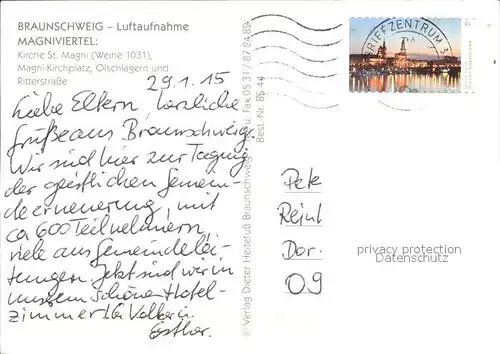 BRAUNSCHWEIG – Luftaufnahme
MAGNIVIERTEL:
Kirche St. Magni (Weihe 1031),
Magni-Kirchplatz, Ölschlägern und
Ritterstraße
29.1.15
Liebe Eltern, herzliche
Grüße aus Braunschweig.
Wir sind hier zur Tagung
der geistlichen Gemein-
deerneuerung, mit
ca 600 Teilnehmern,
viele aus Gemeindelei-
tungen. Jetzt sind wir in
unserem schönen Hotel-
zimmer. Volker u.
Esther.
© Verlag Dieter Heitefuß Braunschweig Tel. u. Fax 05 31 / 87 24 89
Best.-Nr. BS 44
BRIEFZENTRUM 3
Pete
Reinl
Dor.
09
privacy protection
Datenschutz